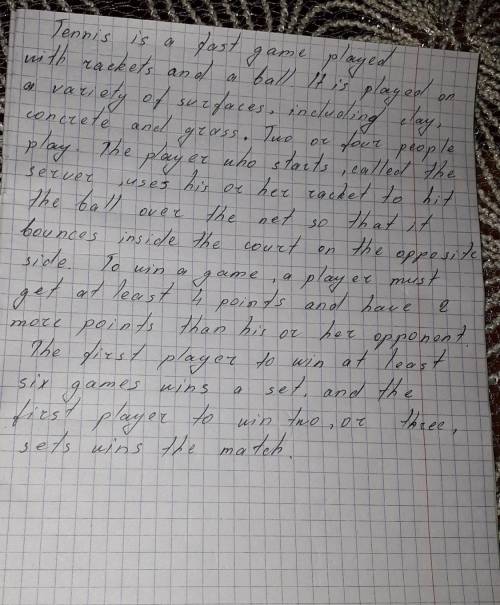 Tennis is a fast game played
with rackets and a ball It is played on
a variety of surfaces, including clay,
concrete and grass. Two or four people
play. The player who starts, called the
server, uses his or her racket to hit
the ball over the net so that it
bounces inside the court on the opposite
side. To win a game, a player must
get at least 4 points and have 2
more points than his or her opponent.
The first player to win at least
six games wins a set, and the
first player to win two, or three,
sets wins the match.